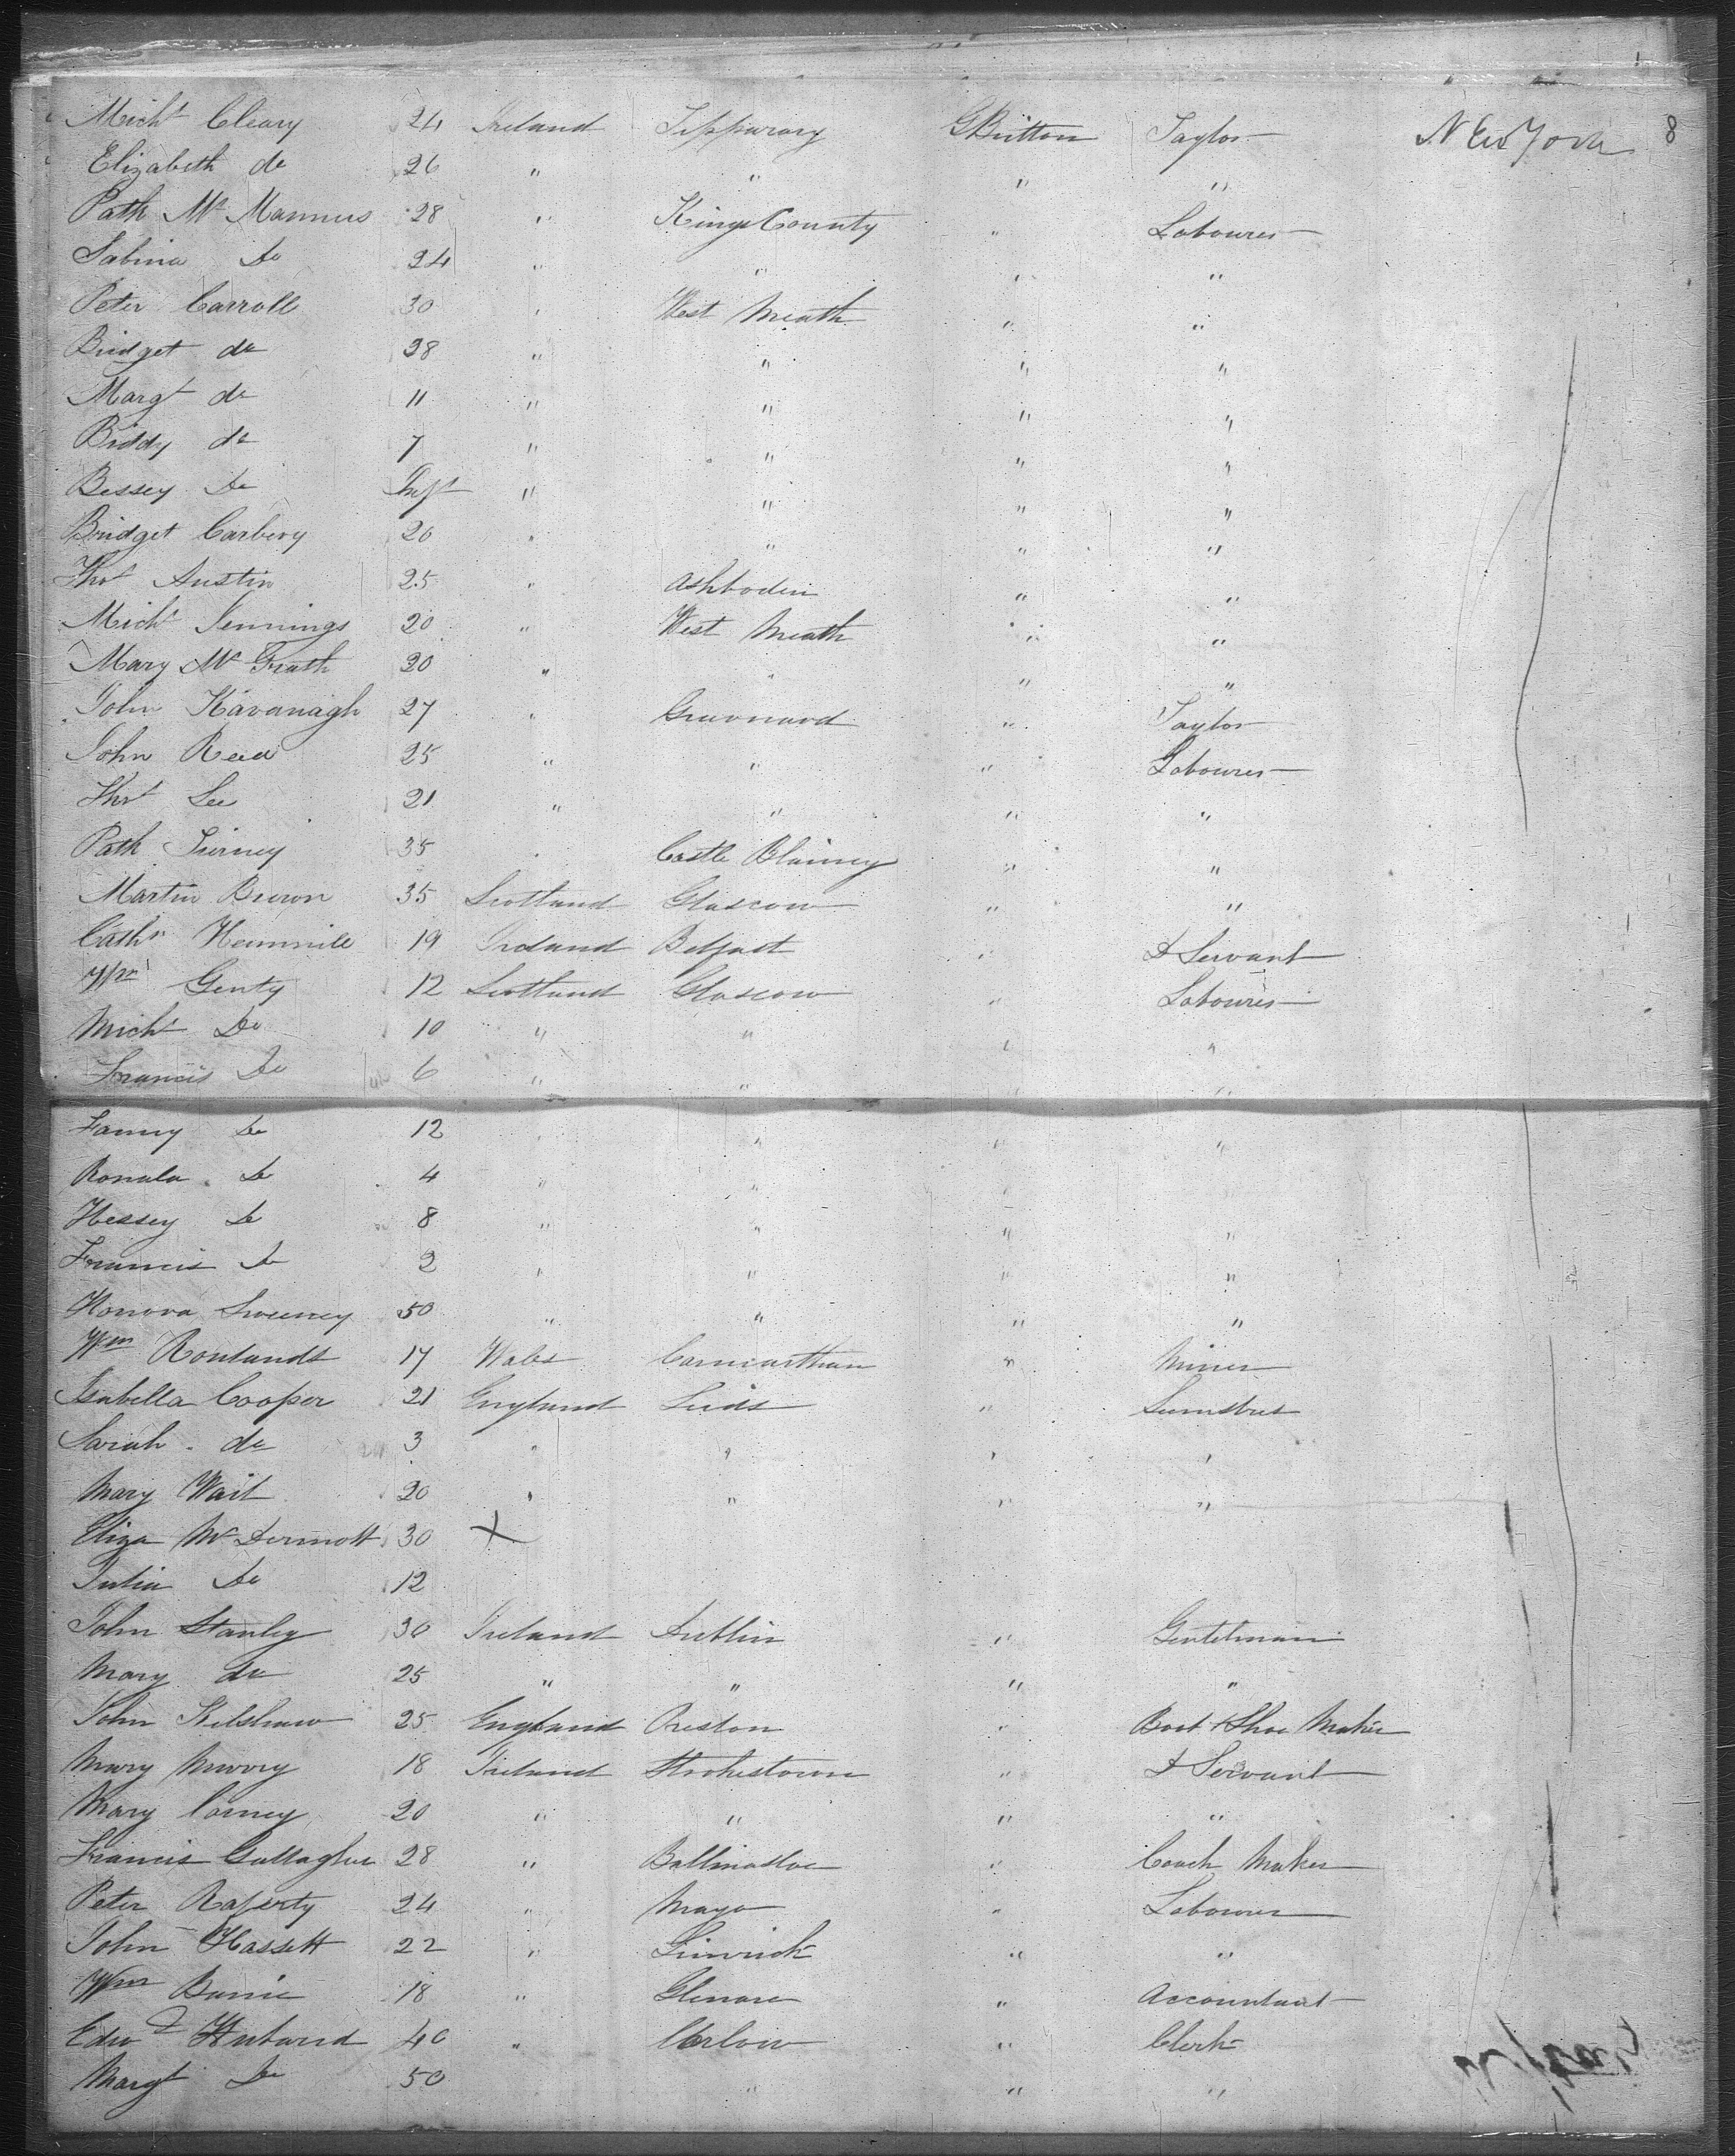 Micht Cleary 24 Ireland Tipparary GBritton Taylor New York 8
Elizabeth do 26 " " " "
Path Mc Mannus 28 " Kings County " Labourer
Sabina Do 24 " " " "
Peter Carroll 30 " West Meath " "
Bridget do 28 " " " "
Margt do 11 " " " "
Biddy do 7 " " " "
Bessey Do Inft " " " "
Bridget Carbery 20 " " " "
Thos Austin 25 " Ashbodin " "
Micht Jennings 20 " West Meath " "
Mary Mc Grath 20 " " " "
John Kavanagh 27 " " Taylor
John Reed 25 " " " Labourer
Thos Lee 21 " " " "
Path Tierney 35 " Castle Blainey " "
Martin Brown 35 Scotland Glascow " "
Cathn 19 Ireland Belfast " D Servant
Wm Genty 12 Scotland Glascow " Labourer
Micht Do 10 " " " "
Francis Do 6 " " " "
Fanny Do 12 " " " "
Do 4 " " " "
Hessey Do 8 " " " "
Francis Do 2 " " " "
Honora Sweeney 50 " " " "
Wm Roulands 17 Wales Carmarthan " Miner
Isabella Cooper 21 England Leids " Semstres
Sarah do 3 " " " "
Mary Wait 20 " " " "
Eliza Mc Dermott 30 X
Julia Do 12
John Stanley 30 Ireland Dublin " Gentelman
Mary do 25 " " " "
John Kilshaw 25 England Preston " Boot & Shoe Maker
Mary 18 Ireland Strokestown " D Servant
Mary Carney 20 " " " "
Francis Gallagher 28 " Ballinasloe " Coach Maker
Peter Raferty 24 " Mayo " Labourer
John Hassett 22 " Limrick " "
Wm 18 " " Accountant
Edwd 40 " Carlow " Clerk
Margt Do 50 " " "